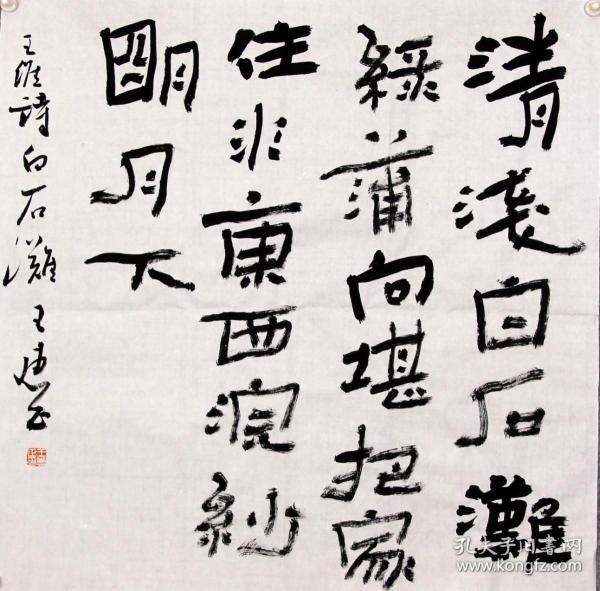 清淺白石灘
綠蒲向堪把家
住水東西浣紗
明月下
王維詩白石灘 王
孔夫子旧书网
www.kongfz.com